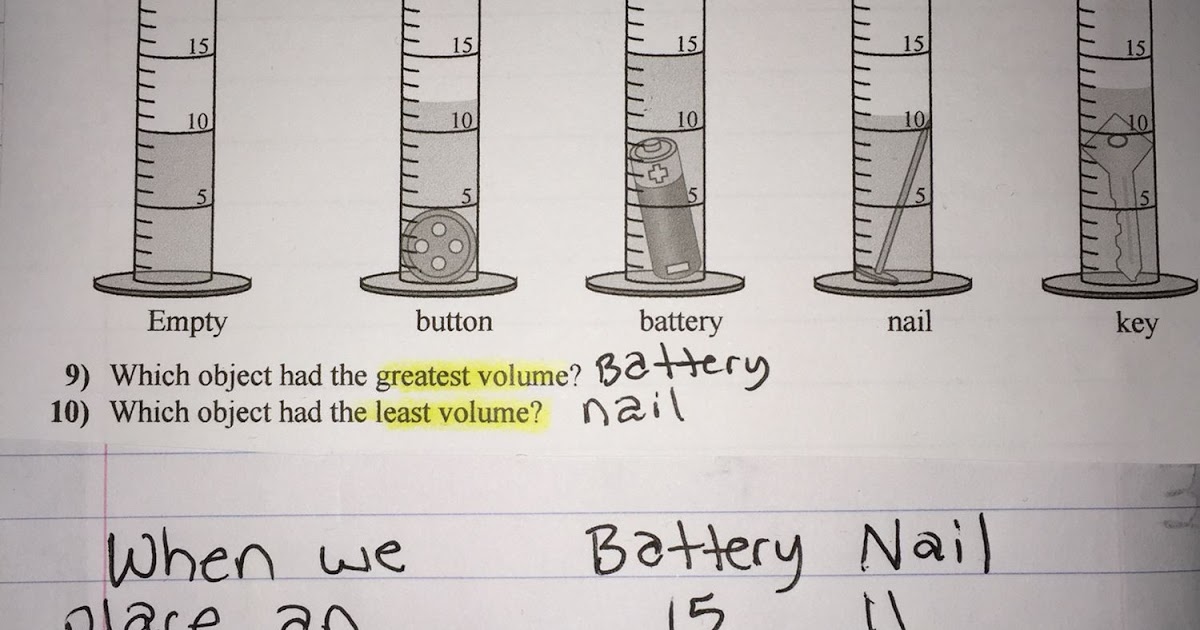 15 15 15 15 15
10 10 10 10 10
5 5 5 5 5
Empty button battery nail key
9) Which object had the greatest volume? Battery
10) Which object had the least volume? nail
When we Battery Nail
place an 15 11